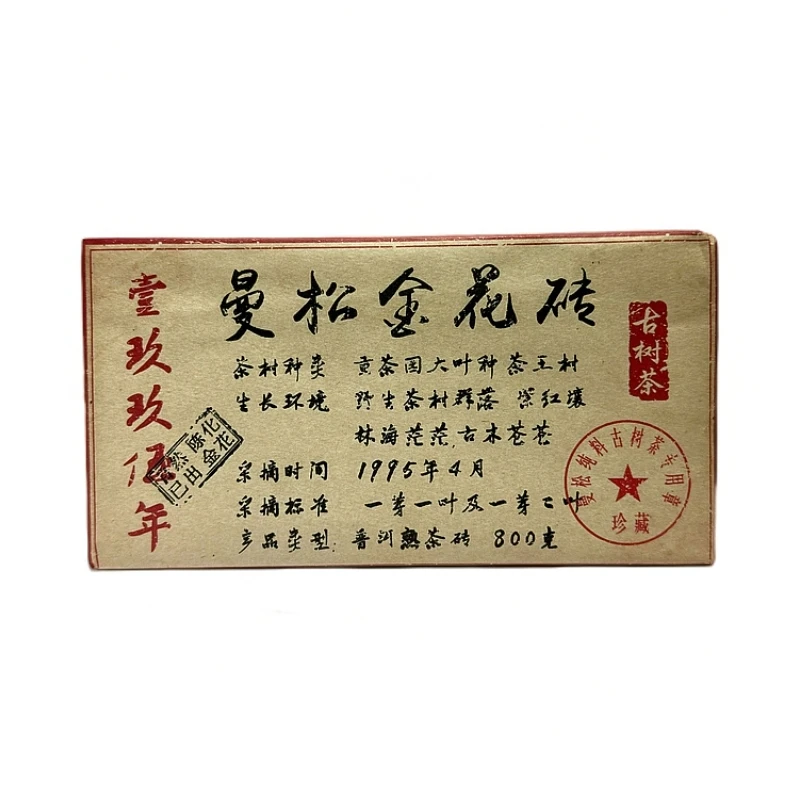 壹玖玖伍年
曼松金花砖
古树茶
茶树种类 贡茶园大叶种茶王树
生长环境 野生茶树群落 紫红壤
林海茫茫,古木苍苍
自然陈化
已出金花
采摘时间 1995年4月
采摘标准 一芽一叶及一芽二叶
产品类型 普洱熟茶砖 800克
曼松纯料古树茶专用章
珍藏